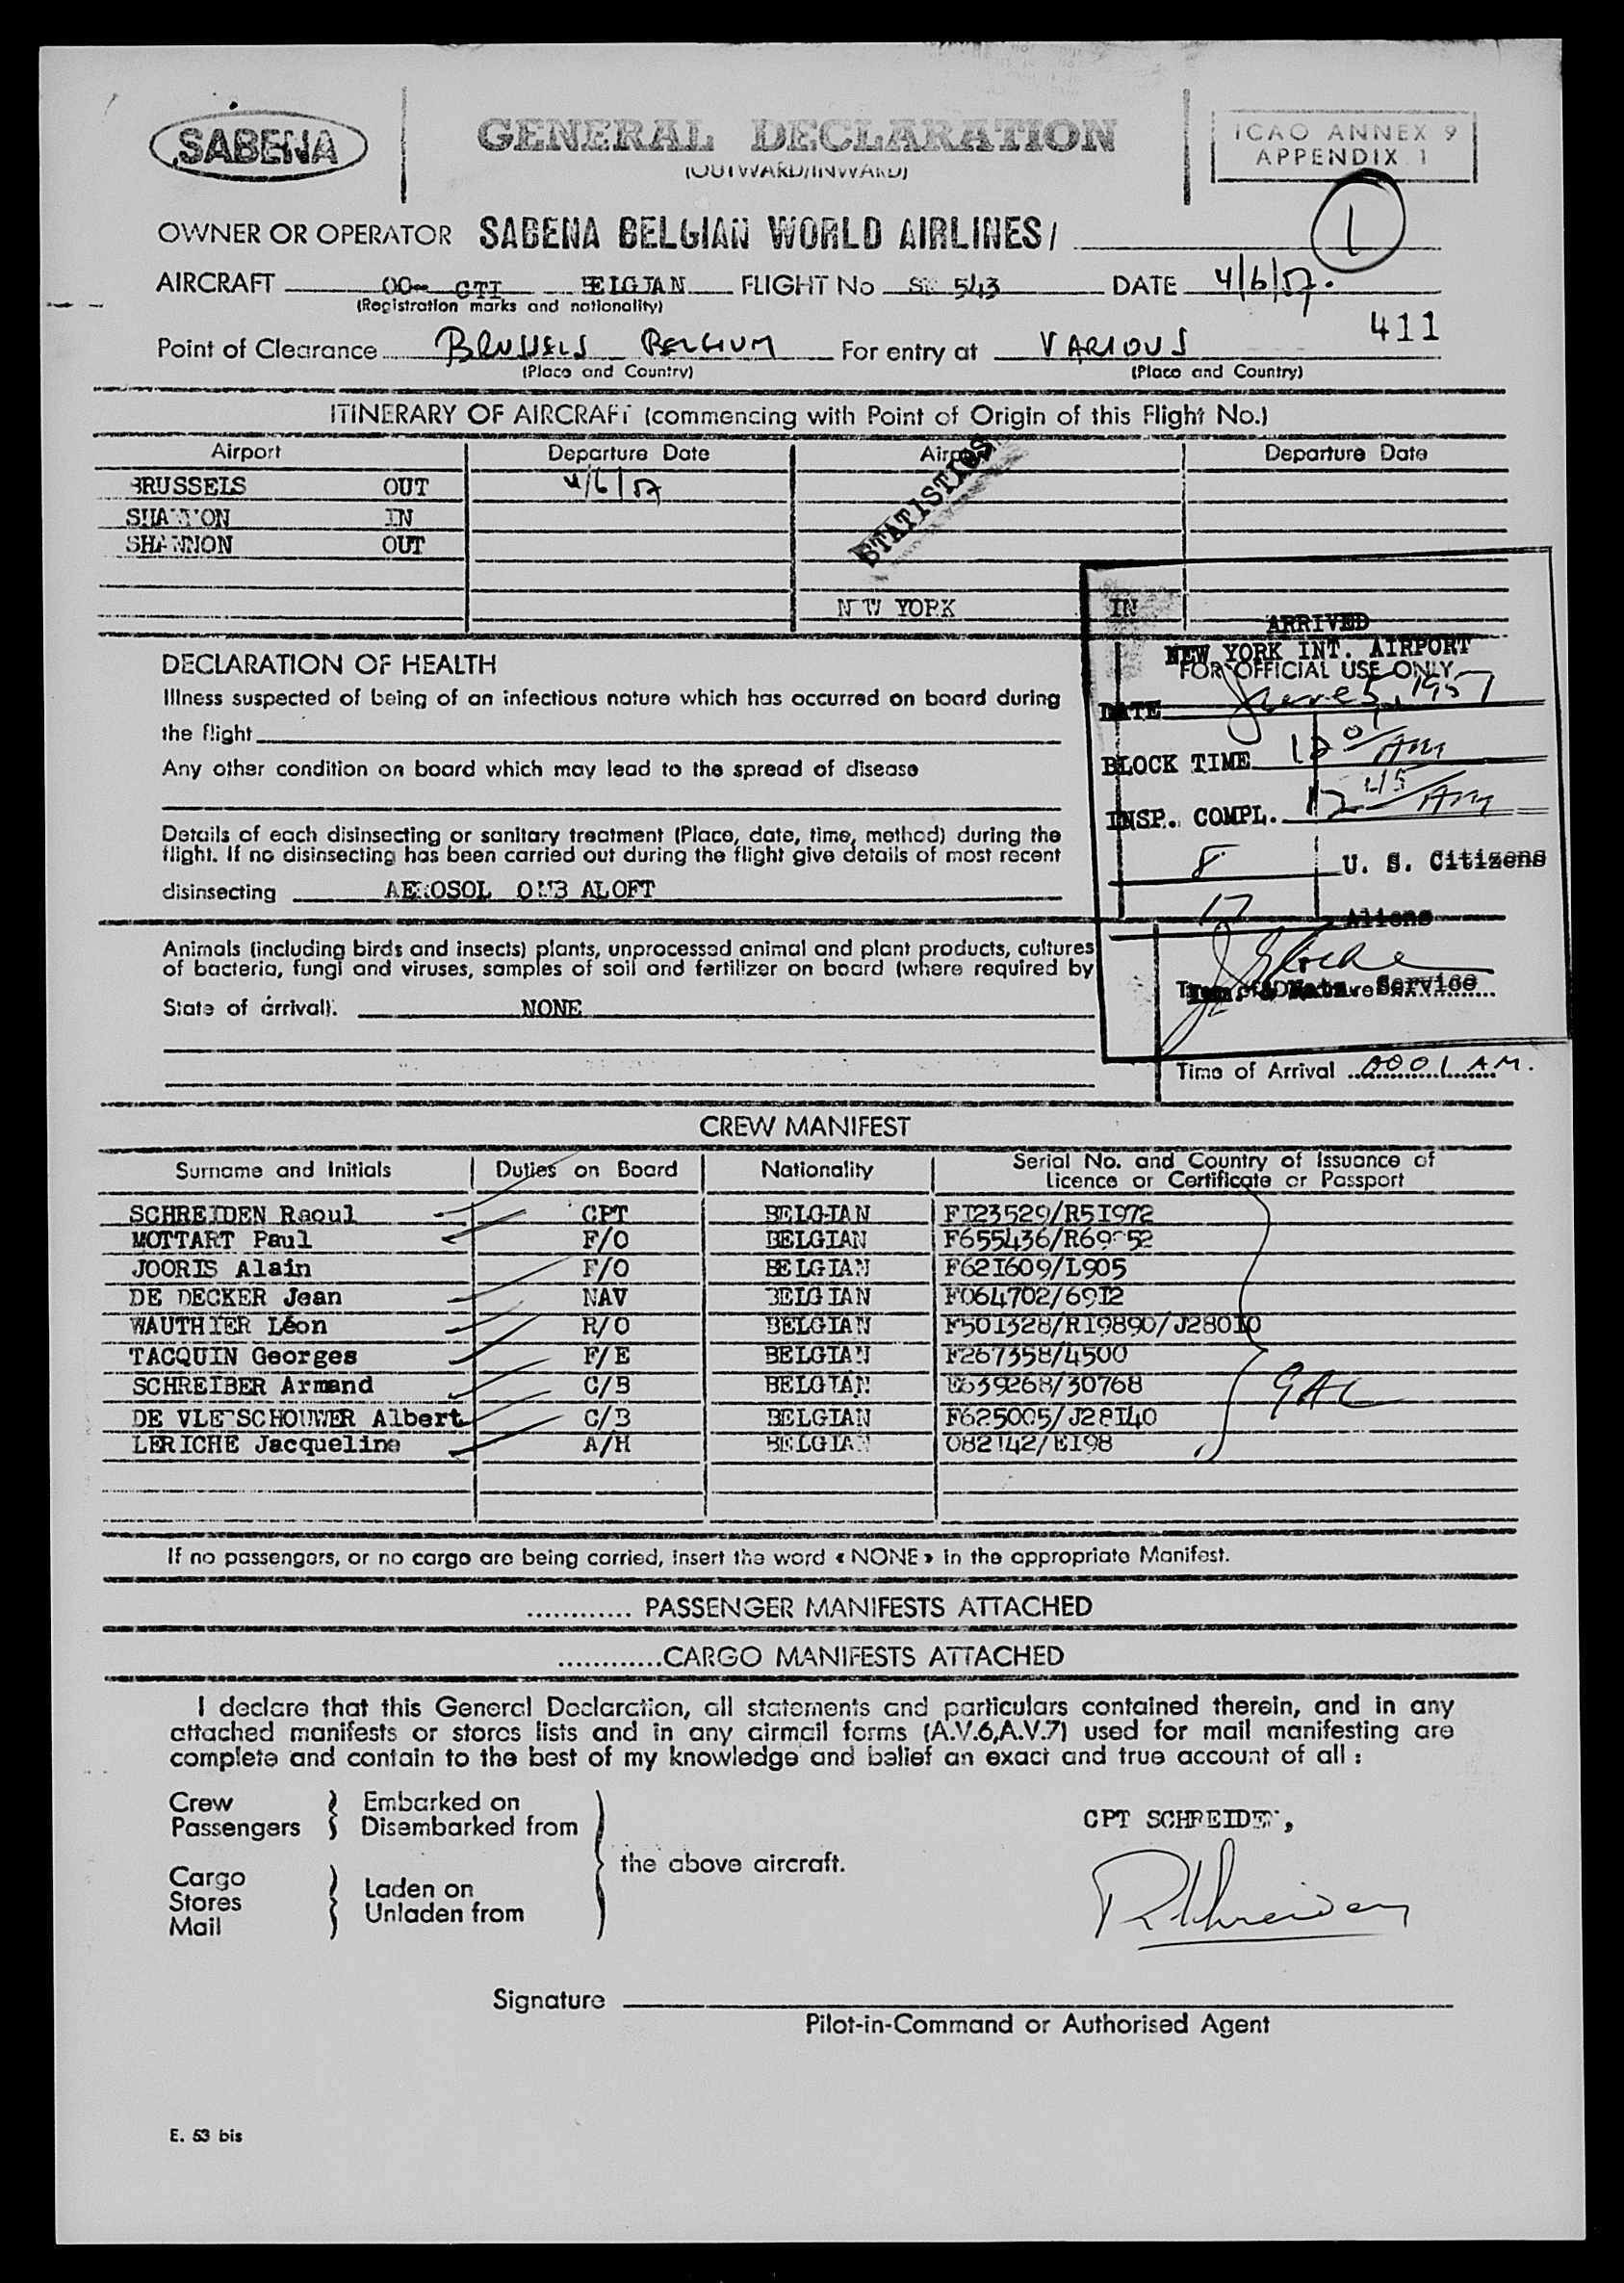 SABENA
GENERAL DECLARATION
(OUTWARD/INWARD)
ICAO ANNEX 9
APPENDIX 1
1
OWNER OR OPERATOR SABENA BELGIAN WORLD AIRLINES/
AIRCRAFT OO- CTI BELGIAN FLIGHT No SN 543 DATE 4/6/57.
(Registration marks and nationality)
411
Point of Clearance BRUSSELS BELGIUM For entry at VARIOUS
(Place and Country) (Place and Country)
ITINERARY OF AIRCRAFT (commencing with Point of Origin of this Flight No.)
Airport Departure Date Airport Departure Date
STATISTICS
BRUSSELS OUT 4/6/57
SHANNON IN
SHANNON OUT
NEW YORK IN
ARRIVED
NEW YORK INT. AIRPORT
FOR OFFICIAL USE ONLY
DATE June 5, 1957
BLOCK TIME 12 01 AM
INSP. COMPL. 12 45 AM
8 U. S. Citizens
17 Aliens
Imm. & Natz. Service
Time of Arrival 0001 AM.
DECLARATION OF HEALTH
Illness suspected of being of an infectious nature which has occurred on board during
the flight
Any other condition on board which may lead to the spread of disease
Details of each disinsecting or sanitary treatment (Place, date, time, method) during the
flight. If no disinsecting has been carried out during the flight give details of most recent
disinsecting AEROSOL OMB ALOFT
Animals (including birds and insects) plants, unprocessed animal and plant products, cultures
of bacteria, fungi and viruses, samples of soil and fertilizer on board (where required by
State of arrival). NONE
CREW MANIFEST
Surname and Initials Duties on Board Nationality Serial No. and Country of Issuance of
Licence or Certificate or Passport
SCHREIDEN Raoul CPT BELGIAN FI23529/R5I972
MOTTART Paul F/O BELGIAN
JOORIS Alain F/O BELGIAN F62I609/L905
DE DECKER Jean NAV BELGIAN F064702/69I2
WAUTHIER Léon R/O BELGIAN F50I328/RI9890/J280I0
TACQUIN Georges F/E BELGIAN F267358/4500
SCHREIBER Armand C/B BELGIAN E639268/30768
DE VLEESCHOUWER Albert C/B BELGIAN F625005/J28I40
LERICHE Jacqueline A/H BELGIAN 082142/EI98
If no passengers, or no cargo are being carried, insert the word « NONE » in the appropriate Manifest.
............ PASSENGER MANIFESTS ATTACHED
............CARGO MANIFESTS ATTACHED
I declare that this General Declaration, all statements and particulars contained therein, and in any
attached manifests or stores lists and in any airmail forms (A.V.6,A.V.7) used for mail manifesting are
complete and contain to the best of my knowledge and belief an exact and true account of all :
Crew Embarked on
Passengers Disembarked from
the above aircraft.
Cargo
Stores Laden on
Mail Unladen from
CPT SCHREIDEN,
RSchreiden
Signature
Pilot-in-Command or Authorised Agent
E. 53 bis